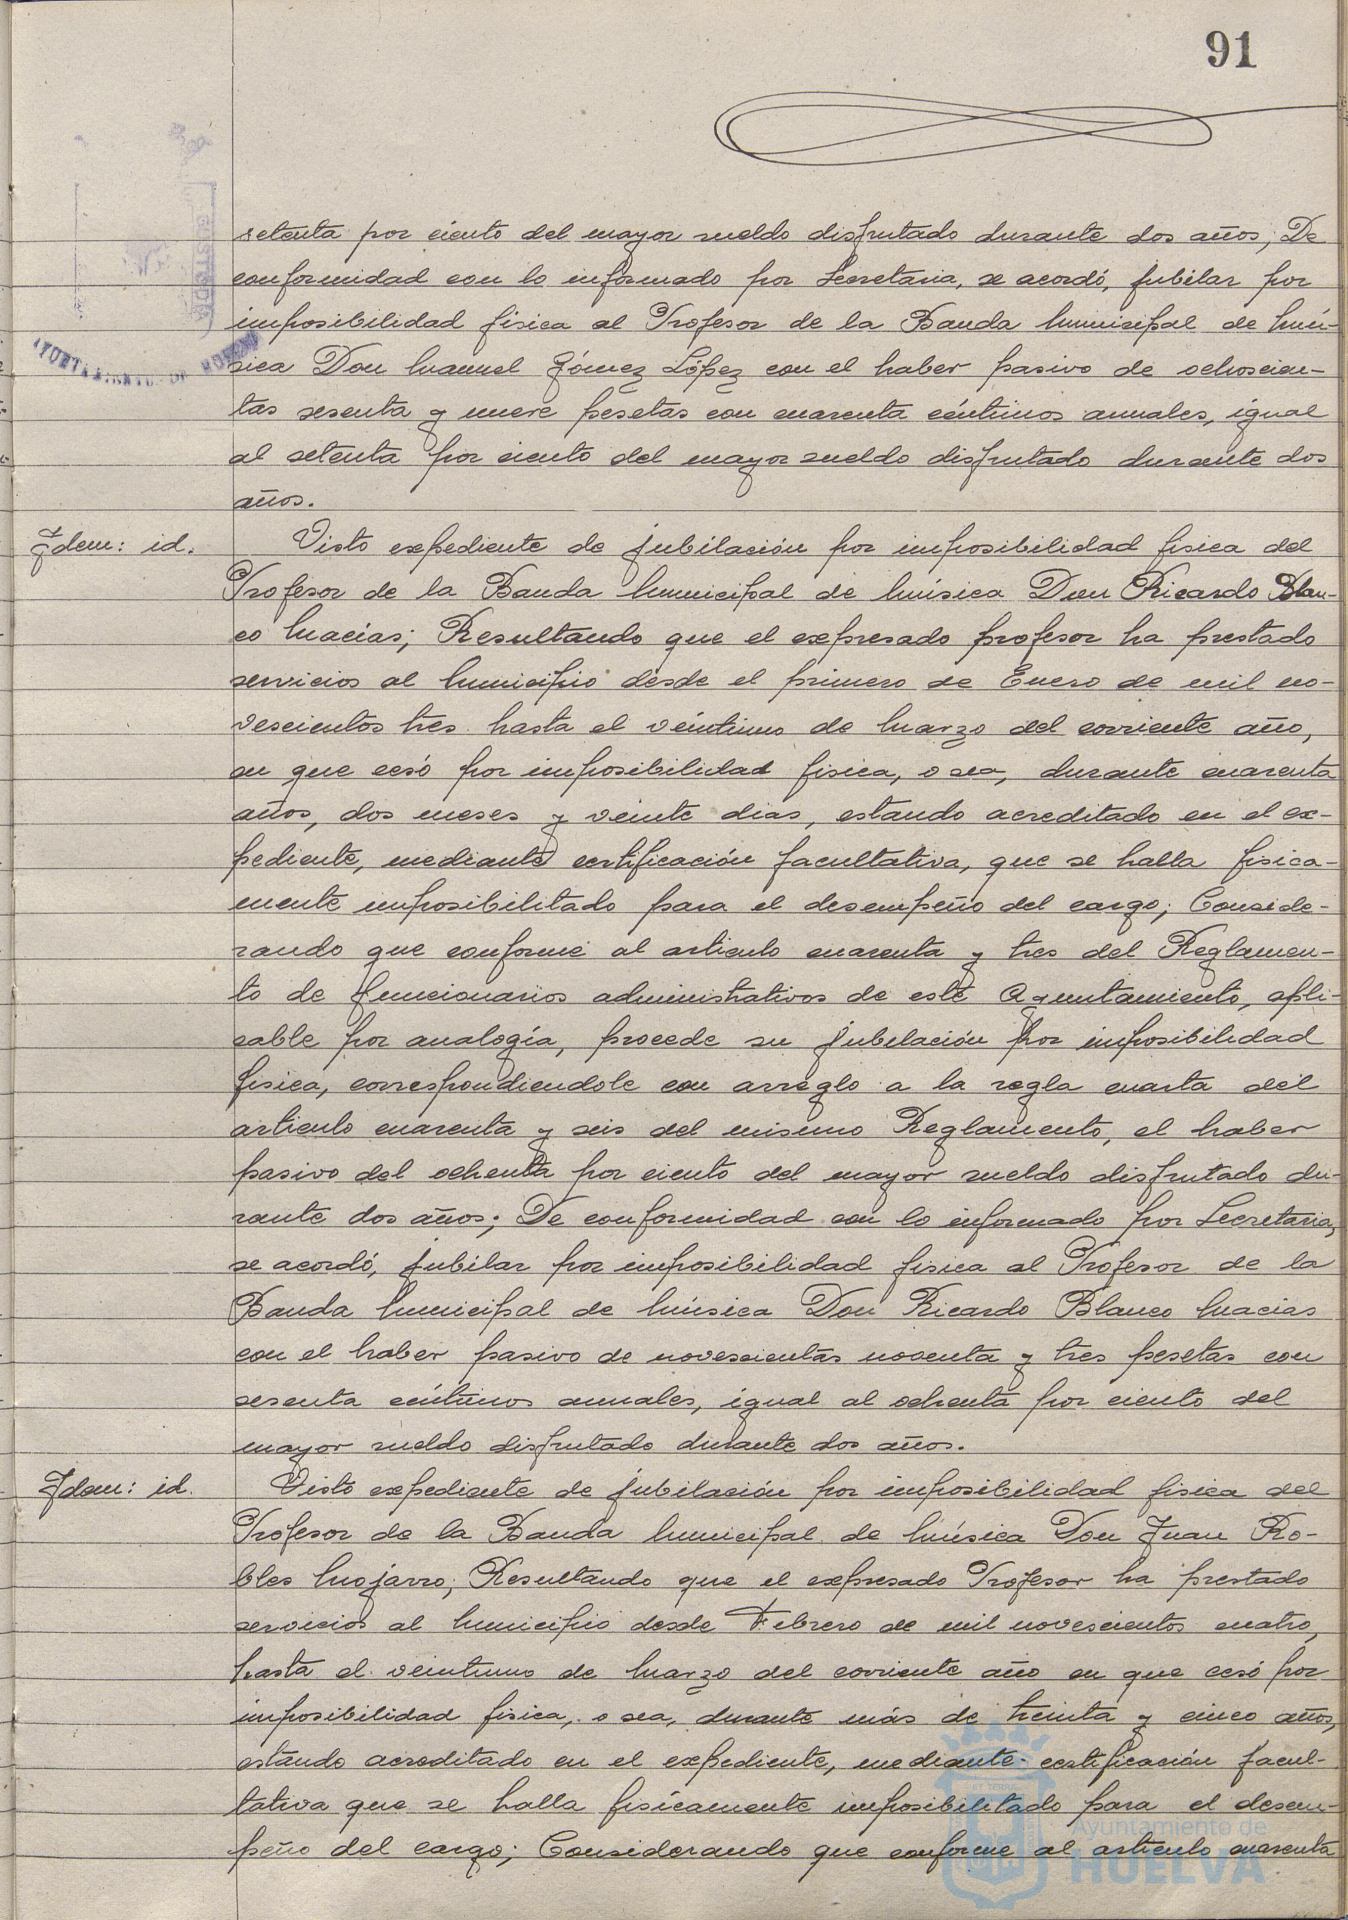 91
setenta por ciento del mayor sueldo disfrutado durante dos años; De
conformidad con lo informado por Secretaria, se acordó, jubilar por
imposibilidad fisica al Profesor de la Banda Municipal de Mú-
sica Don Manuel Gómez López con el haber pasivo de ochocien-
tas sesenta y nueve pesetas con cuarenta céntimos anuales, igual
al setenta por ciento del mayor sueldo disfrutado durante dos
años.
Idem: id. Visto expediente de jubilación por imposibilidad fisica del
Profesor de la Banda Municipal de Música Don Ricardo Blan-
co Macías; Resultando que el expresado profesor ha prestado
servicios al Municipio desde el primero de Enero de mil no-
vescientos tres hasta el veintiuno de Marzo del corriente año,
en que cesó por imposibilidad fisica, o sea, durante cuarenta
años, dos meses y veinte dias, estando acreditado en el ex-
pediente, mediante certificación facultativa, que se halla fisica-
mente imposibilitado para el desempeño del cargo; Conside-
rando que conforme al articulo cuarenta y tres del Reglamen-
to de funcionarios administrativos de este Ayuntamiento, apli-
cable por analogía, procede su jubilación por imposibilidad
fisica, correspondiendole con arreglo a la regla cuarta del
articulo cuarenta y seis del mismo Reglamento, el haber
pasivo del ochenta por ciento del mayor sueldo disfrutado du-
rante dos años; De conformidad con lo informado por Secretaria,
se acordó, jubilar por imposibilidad fisica al Profesor de la
Banda Municipal de Música Don Ricardo Blanco Macias
con el haber pasivo de novescientas noventa y tres pesetas con
sesenta céntimos anuales, igual al ochenta por ciento del
mayor sueldo disfrutado durante dos años.
Idem: id. Visto expediente de jubilación por imposibilidad fisica del
Profesor de la Banda Municipal de Música Don Juan Ro-
bles Mojarro; Resultando que el expresado Profesor ha prestado
servicios al Municipio desde Febrero de mil novescientos cuatro,
hasta el veintiuno de Marzo del corriente año en que cesó por
imposibilidad fisica, o sea, durante más de treinta y cinco años,
estando acreditado en el expediente, mediante certificación facul-
tativa que se halla fisicamente imposibilitado para el desem-
peño del cargo; Considerando que conforme al articulo cuarenta
Ayuntamiento de
HUELVA